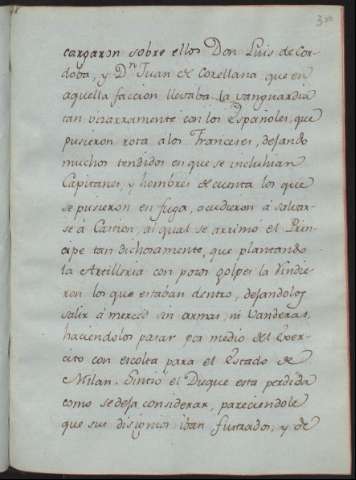 cargaron sobre ellos Don Luis de Cor-
doba, y Dn Juan de Orellana que en
aquella faccion llevaba la vanguardia
tan vizarramente con los Españoles, que
pusieron rota a los Franceses, dejando
muchos tendidos en que se incluhian
Capitanes, y hombres de cuenta los que
se pusieron en fuga, acudieron á salvar-
se a al qual se arrimo el Prin-
cipe tan dichosamente, que plantando
la Artilleria con pocos golpes la rindie-
ron los que estaban dentro, dejandolos
salir á merced sin armas, ni Vanderas,
haciendolos pasar por medio del Exer-
cito con escolta para el Estado de
Milan. Sintió el Duque esta perdida
como se deja considerar, pareciendole
que sus disignios iban frustrados, y de